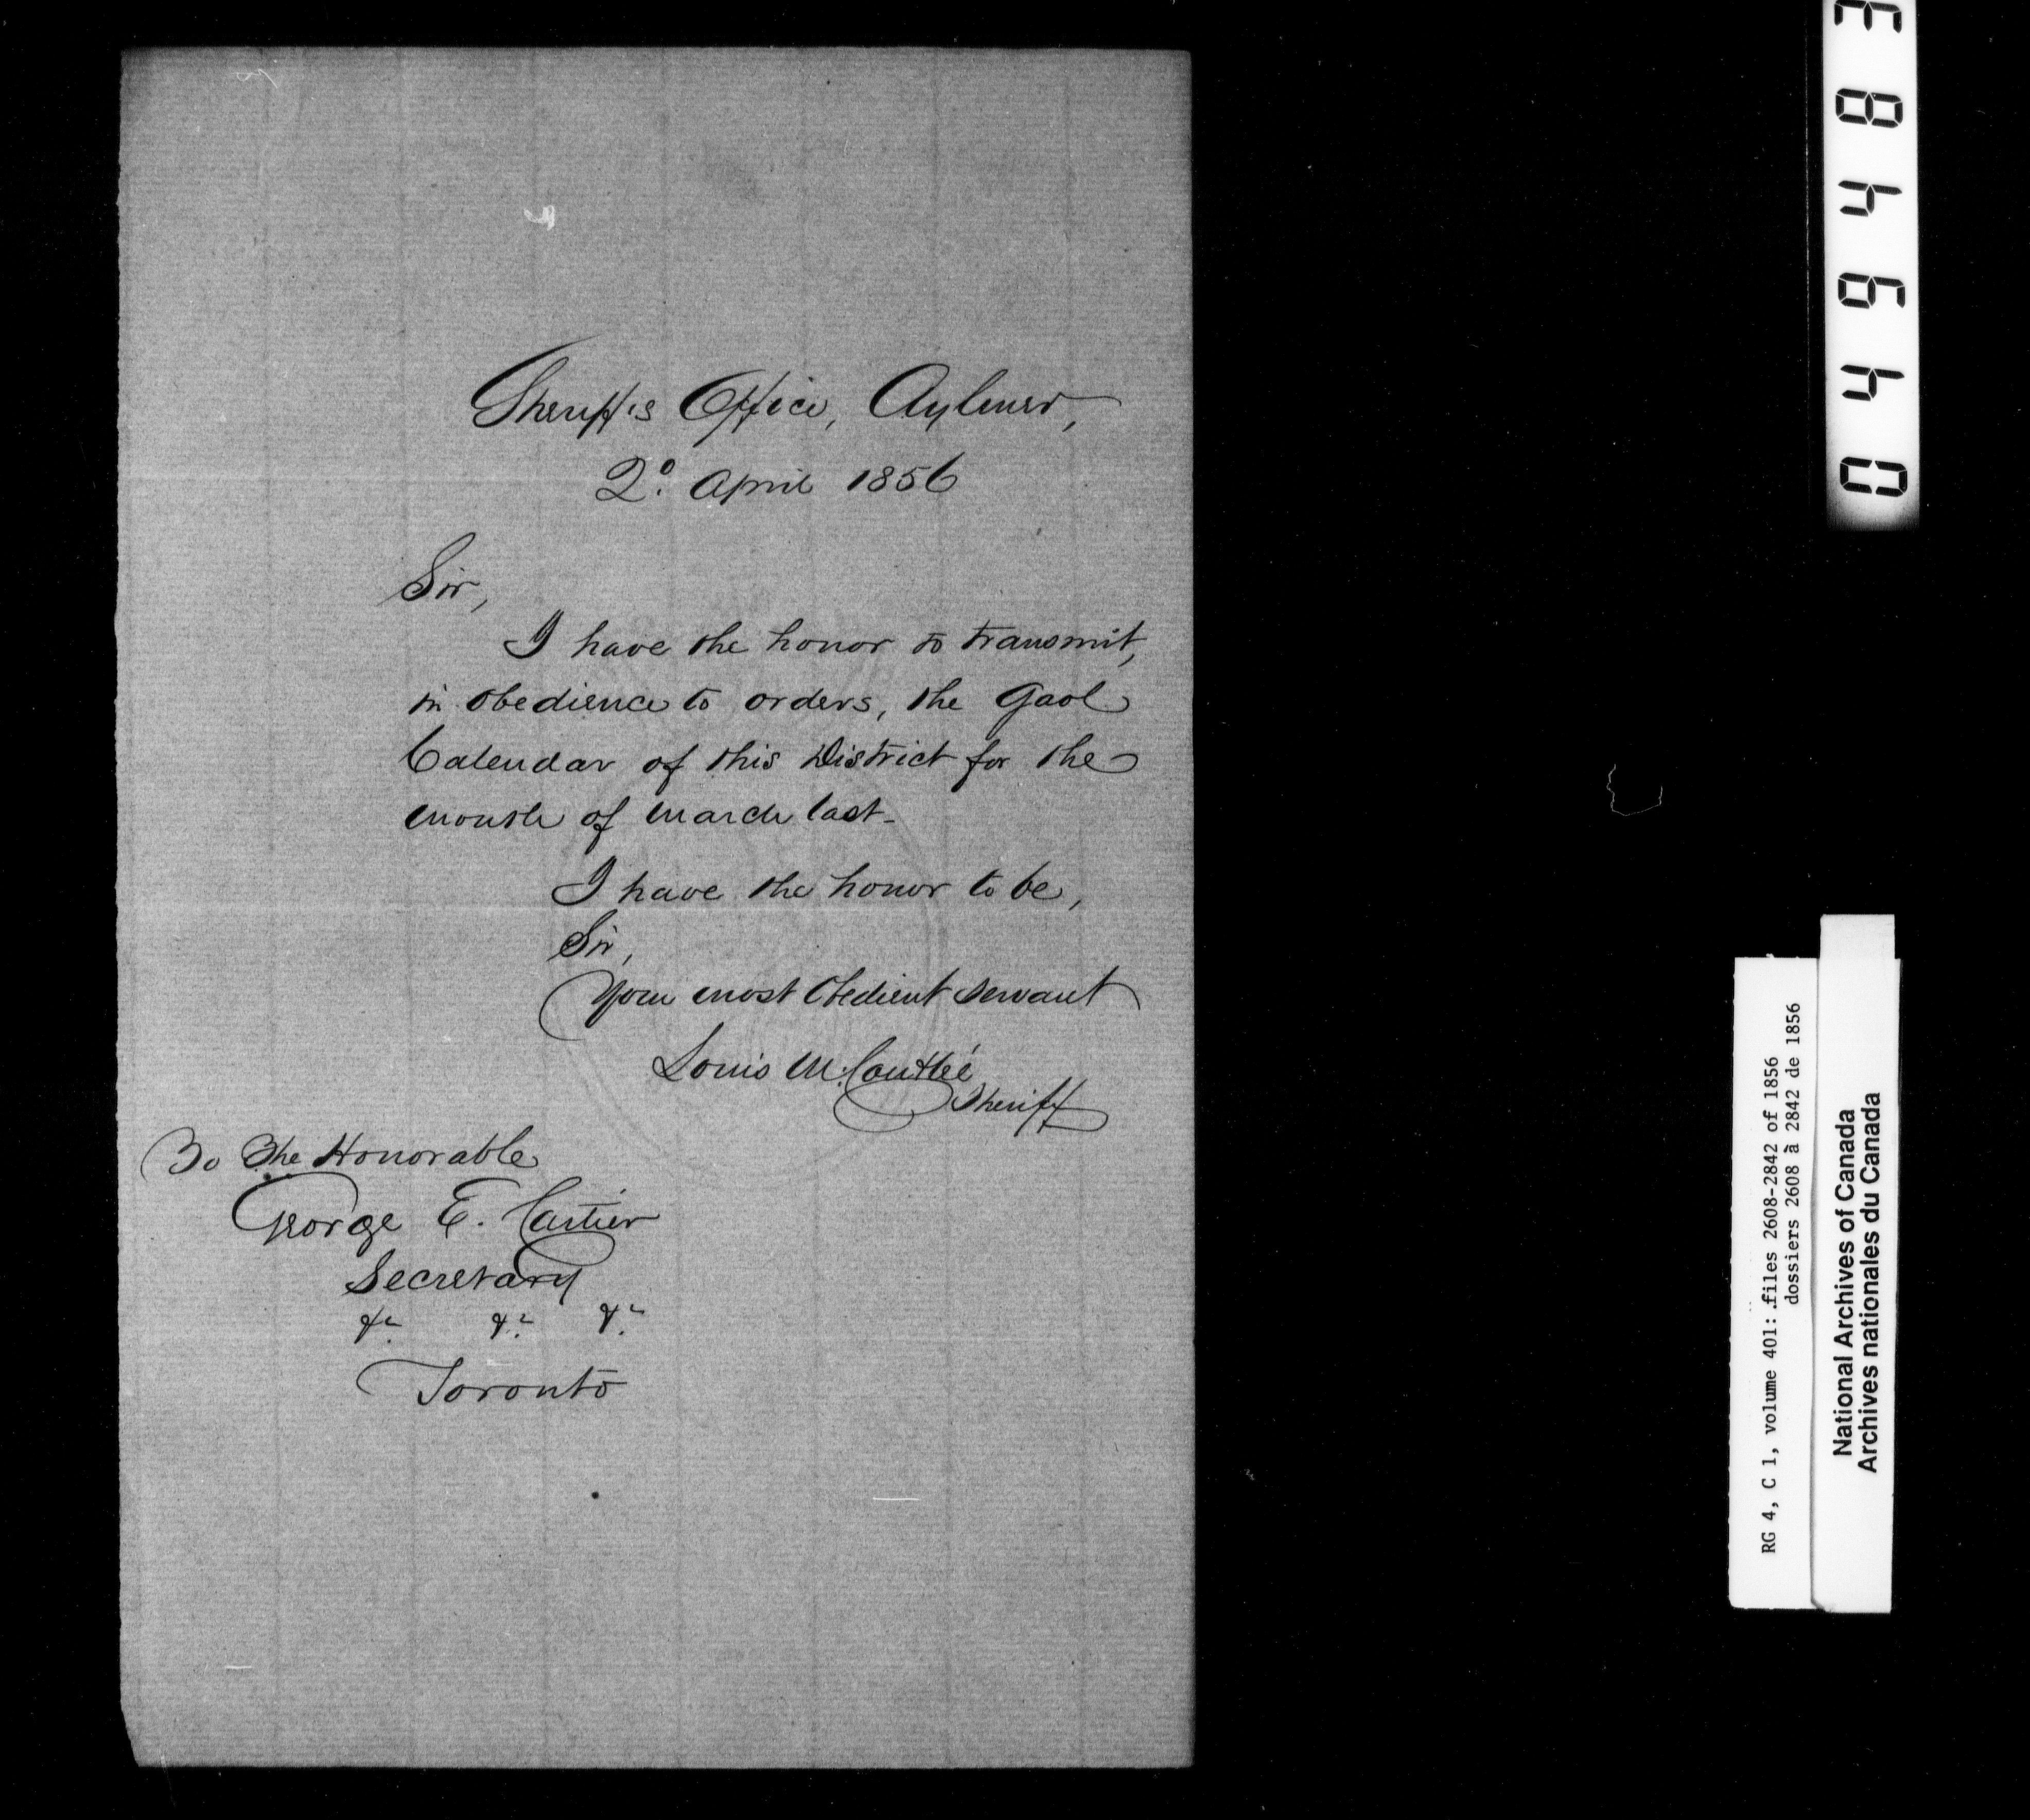 Sheriff's Office, Aylmer,
2º. April 1856
Sir,
I have the honor to transmit,
in obedience to orders, the Gaol
Calendar of this District for the
month of March last_
I have the honor to be,
Sir,
Your most obedient servant
Louis M. Coutlée
Sheriff
To The Honorable
George E. Cartier
Secretary
&c. &c. &c.
Toronto
RG 4, C 1, volume 401: files 2608-2842 of 1856
dossiers 2608 à 2842 de 1856
National Archives of Canada
Archives nationales du Canada